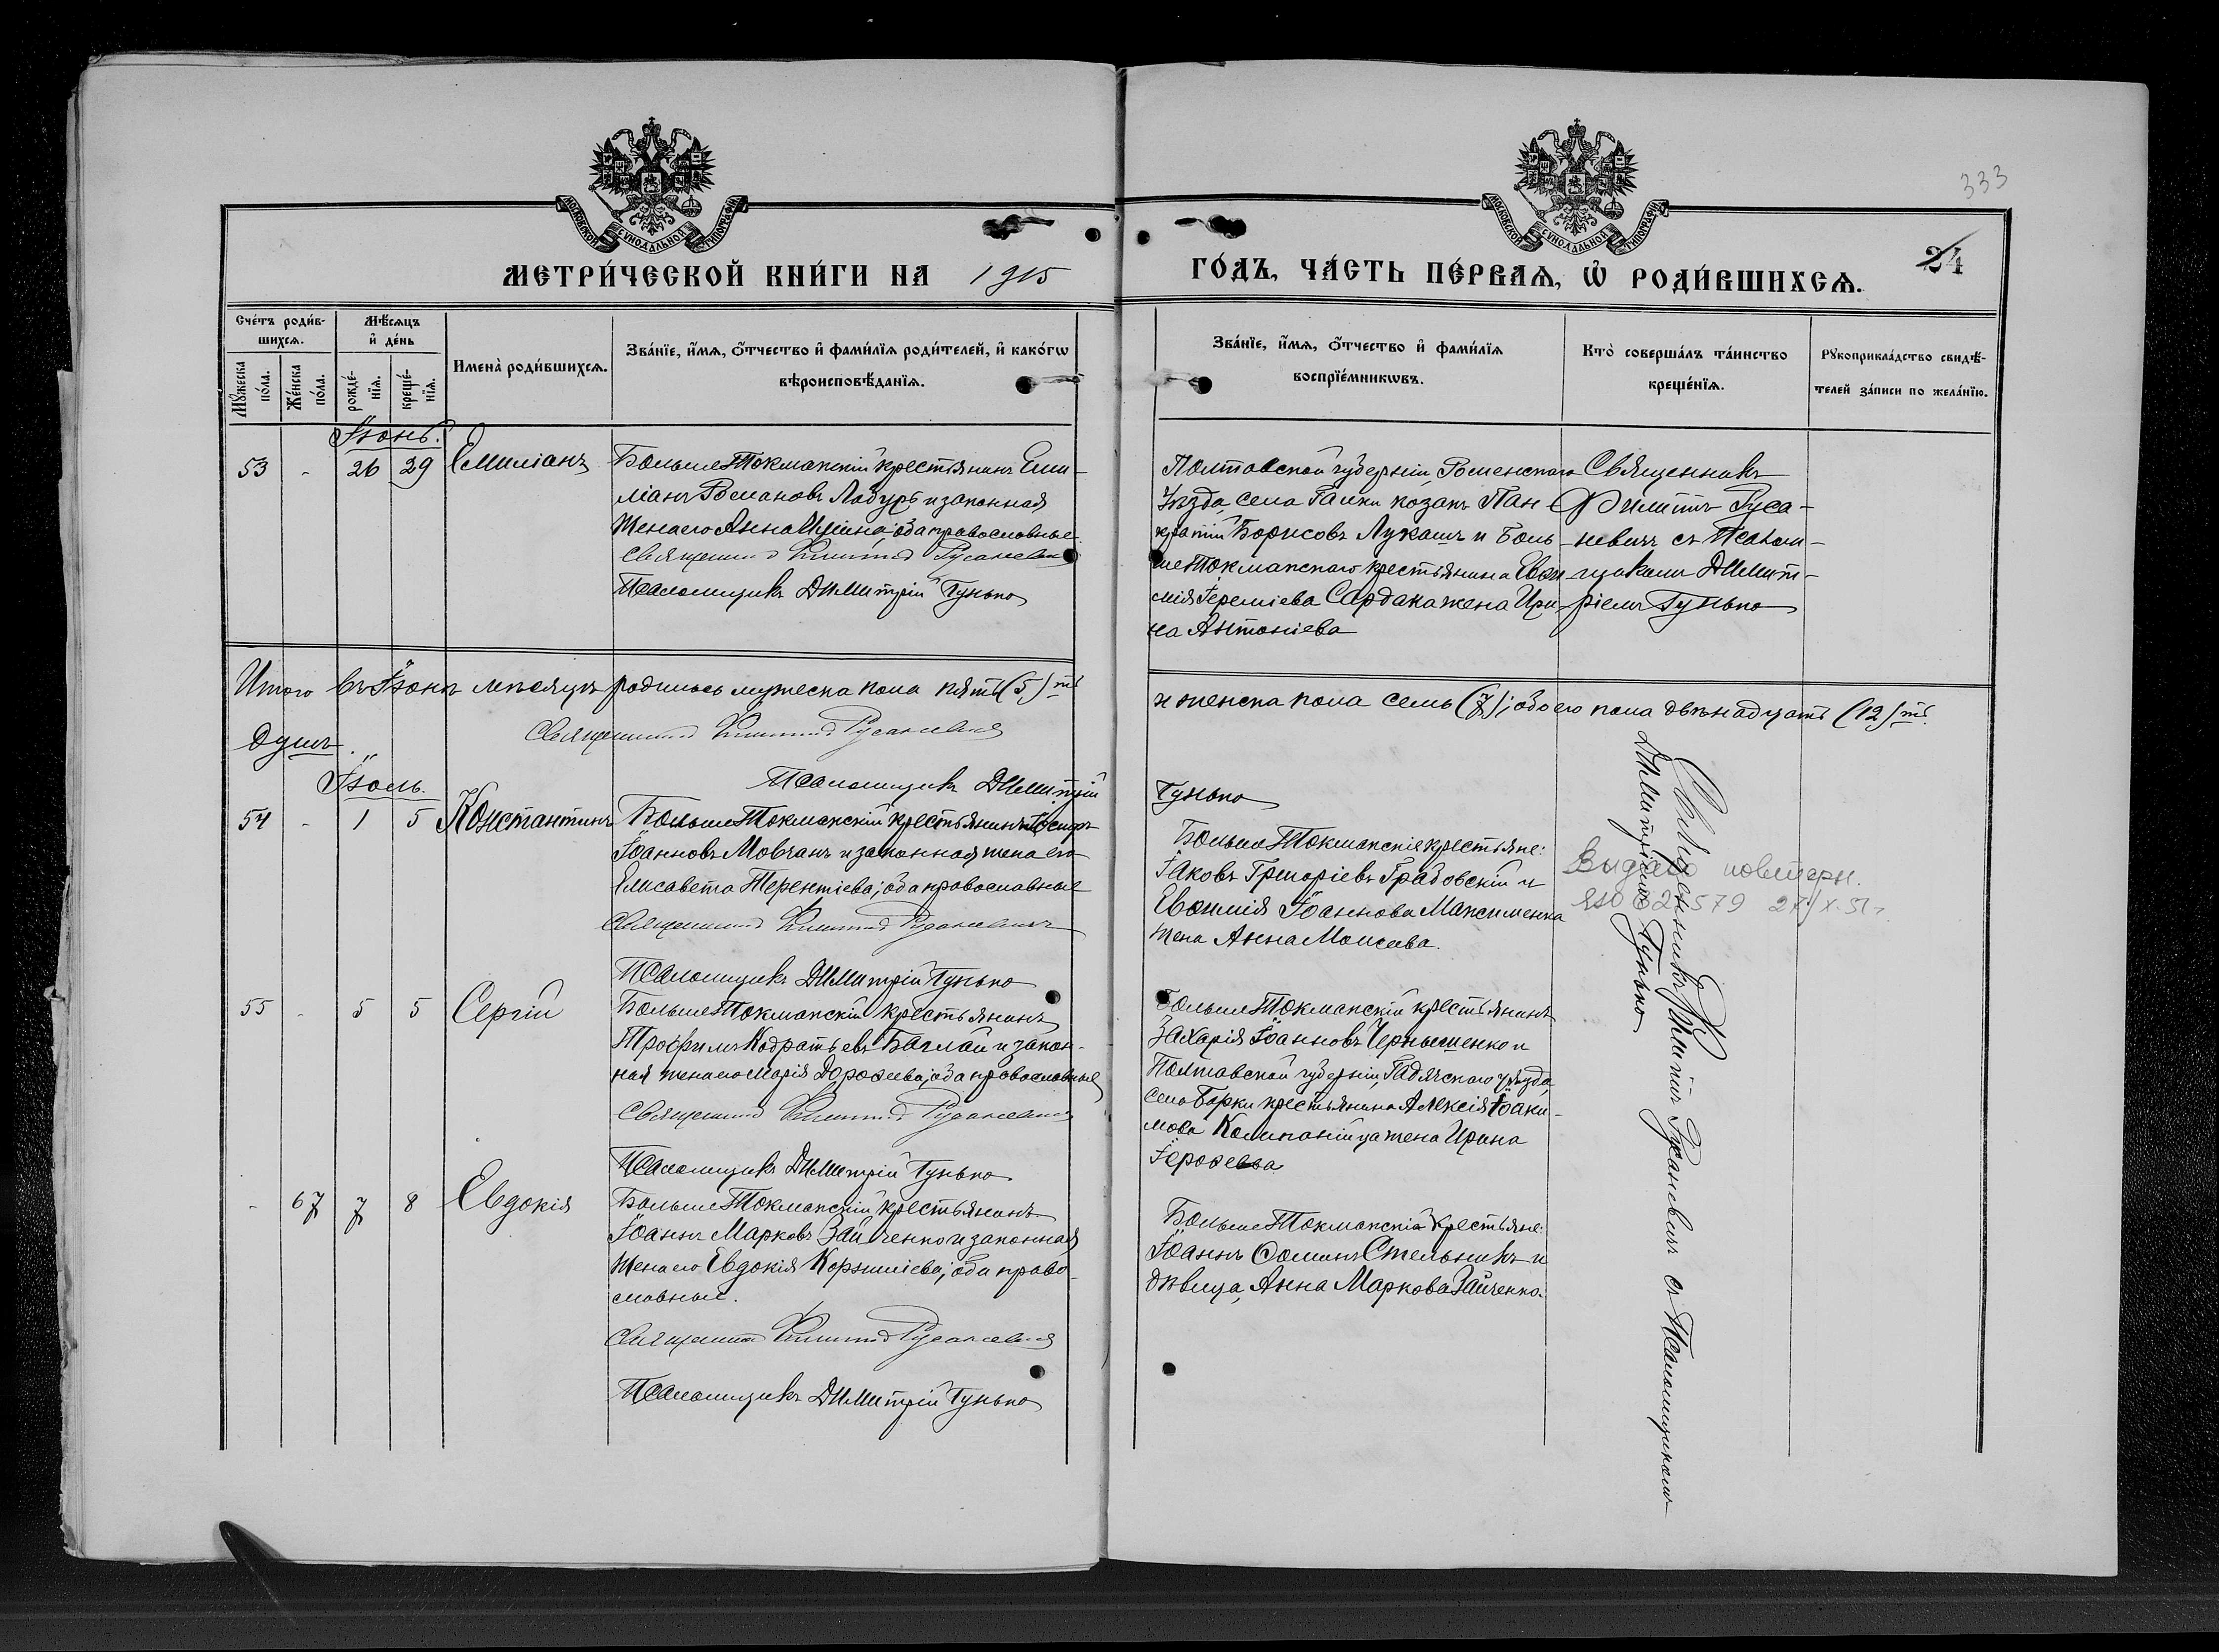 333
МОСКОВСКОЙ СѴНОДАЛЬНОЙ ТИПОГРАФІИ
МОСКОВСКОЙ СѴНОДАЛЬНОЙ ТИПОГРАФІИ
МЕТРИ́ЧЕСКОЙ КНИ́ГИ НА 1915
ГО́ДЪ, ЧА́СТЬ ПЕ́РВАѦ, Ѡ҆ РОДИ́ВШИХСѦ.
24
Сче́тъ роди́в-
шихсѧ.
Мꙋ́жеска
по́ла.
Же́нска
по́ла.
Мѣ́сѧцъ
и҆ де́нь
рожде́-
нїѧ.
креще́-
нїѧ.
Имена̀ роди́вшихсѧ.
Зва́нїе, и҆́мѧ, ѻ҆́тчество и҆ фами́лїѧ роди́телей, и҆ како́гѡ
вѣроисповѣ́данїѧ.
Зва́нїе, и҆́мѧ, ѻ҆́тчество и҆ фами́лїѧ
воспрїе́мникѡвъ.
Кто̀ соверша́лъ та́инство
креще́нїѧ.
Рꙋкоприкла́дство свидѣ́-
телей за́писи по жела́нїю.
Іюнь.
53 - 26 29 Емиліанъ
БольшеТокмакскій крестьянинъ Еми-
ліанъ Романовъ Лабуръ и законная
жена его Анна Иліина; оба православные.
Священникъ Филиппъ Русаневичъ
Псаломщикъ Димитрій Гунько
Полтавской губерніи, Роменскаго
уѣзда, села Галки козакъ Пан-
кратій Борисовъ Лукашъ и Боль-
шеТокмакскаго крестьянина Евѳи-
мія Іереміева Сардака жена Ири-
на Антоніева
Священникъ
Филиппъ Руса-
невичъ съ Псалом-
щикомъ Димит-
ріемъ Гунько
Итого въ Іюнѣ мѣсяцѣ родилось мужеска пола пять (5)ть
и женска пола семь (7); обоего пола двѣнадцать (12)ть
душъ.
Священникъ Филиппъ Русаневичъ
Псаломщикъ Димитрій
Гунько
Іюль.
54 - 1 5 Константинъ
БольшеТокмакскій крестьянинъ Іосифъ
Іоанновъ Мовчанъ и законная жена его
Елисавета Терентіева; оба православные
Священникъ Филиппъ Русаневичъ
Псаломщикъ Димитрій Гунько
БольшеТокмакскіе крестьяне:
Іаковъ Григоріевъ Грабовскій и
Евѳимія Іоаннова Максименка
жена Анна Моисеева.
Видано повторн.
27/X-51 г.
55 - 5 5 Сергій
БольшеТокмакскій крестьянинъ
Трофимъ Кодратьевъ Баглай и закон-
ная жена его Марія Дороѳеева; оба православные
Священникъ Филиппъ Русаневичъ
Псаломщикъ Димитрій Гунько
БольшеТокмакскій крестьянинъ
Захарія Іоанновъ Чернышенко и
Полтавской губерніи, Гадячскаго уѣзда,
села Борки крестьянина Алексія Іоаки-
мова Компанійца жена Ирина
Іероѳеева
- 67 7 8 Евдокія
БольшеТокмакскій крестьянинъ
Іоаннъ Марковъ Зайченко и законная
жена его Евдокія Корниліева; оба право-
славные.
Священникъ Филиппъ Русаневичъ
Псаломщикъ Димитрій Гунько
БольшеТокмакскіе крестьяне:
Іоаннъ Ѳоминъ Стельникъ и
дѣвица, Анна Маркова Зайченко.
Священникъ Филиппъ Русаневичъ съ Псаломщикомъ
Димитріемъ Гунько